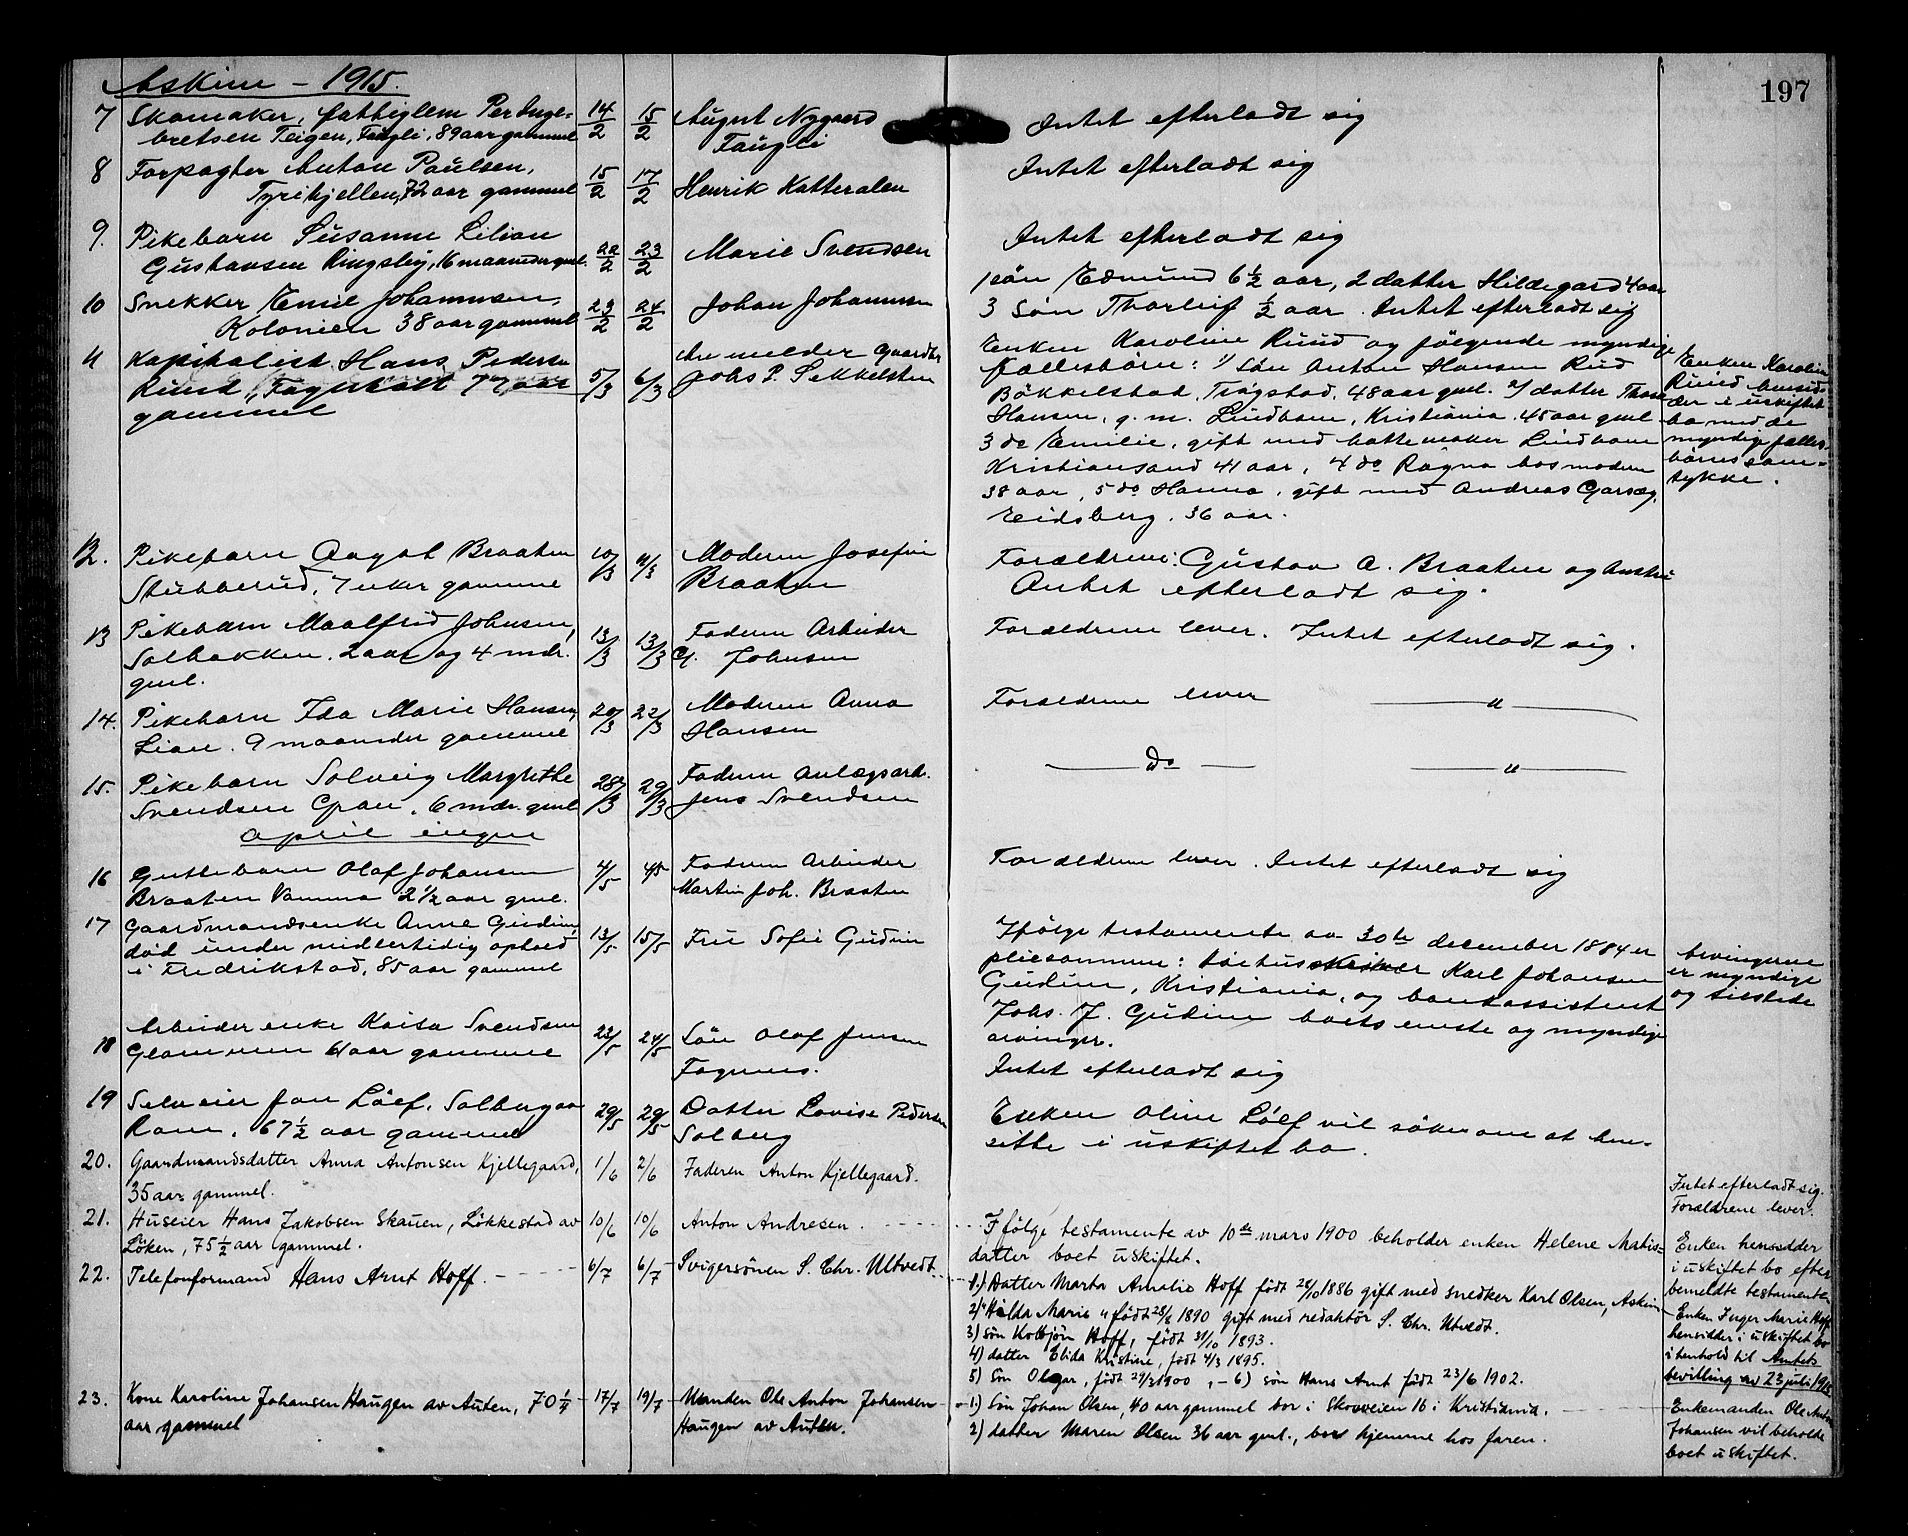 Askim - 1915.
197
7 Skomaker, fattiglem Per Inge- 14/2 15/2 August Nygaard Intet efterladt sig
bretsen Teigen, Faugli, 89 aar gammel Faugli
8 Forpagter Anton Paulsen, 15/2 17/2 Henrik Katteralen Intet efterladt sig
Tyrihjellen, 72 aar gammel
9. Pikebarn Susanne Lilian 22/2 23/2 Marie Svendsen Intet efterladt sig
Gustavsen Ringsby, 16 maaneder gml.
10 Snekker Emil Johannesen, 23/2 24/2 Johan Johannesen 1 søn Edmund 6½ aar, 2 datter Hildegard 4 aar
Kolonien 38 aar gammel 3 søn Thorleif ½ aar. Intet efterladt sig
11 Kapitalist Hans Pedersen 5/3 6/3 Anmelder gaardbr Enken Karoline Ruud og følgende myndige
Ruud, 77 aar Johs P. Sekkelsten fællesbørn: 1/ søn Anton Hansen Rud
gammel Bøkkelstad, Trøgstad, 48 aar gml. 2/ datter Thora
Hansen, g. m. Lindbom, Kristiania 45 aar gml
3 do Emilie, gift med hattemaker Lindbom
Kristiansand 41 aar, 4 do Ragna hos moderen
38 aar, 5 do Hanna, gift med Andreas Garseg,
Eidsberg. 36 aar.
Enken Karoline
Ruud hensid-
der i uskiftet
bo med de
myndige fælles-
børns sam-
tykke.
12. Pikebarn Aagot Braaten 10/3 11/3 Moderen Josefine Forældrene: Gustav A. Braaten og hustru
Stubberud, 7 uker gammel Braaten Intet efterladt sig.
13 Pikebarn Maalfrid Johnsen, 13/3 13/3 Faderen Arbeider Forældrene lever. Intet efterladt sig.
Solbakken. 2 aar og 4 mdr. Johnsen
gml.
14. Pikebarn Ida Marie Hansen, 20/3 22/3 Moderen Anna Forældrene lever — " —
Lien. 9 maaneder gammel Hansen
15. Pikebarn Solveig Margrethe 28/3 29/3 Faderen Anlægsarb. — Do — — " —
Svendsen Gran, 6 mdr. gml Jens Svendsen
April ingen
16 Guttebarn Olaf Johansen 4/5 4/5 Faderen Arbeider Forældrene lever. Intet efterladt sig
Braaten Vamma 2½ aar gml. Martin Joh. Braaten
17 Gaardmandsenke Anne Gudim, 13/5 15/5 Fru Sofie Gudim Ifølge testamente av 30te december 1884 er
død under midlertidig ophold pleiesønnene: Karl Johansen
i Fredrikstad, 85 aar gammel Gudim, Kristiania, og bankassistent
Johs. J. Gudim boets eneste og myndige
arvinger.
Arvingerne
er myndige
og tilstede
18 Arbeider enke Kaisa Svendsen 22/5 24/5 Søn Olaf Jensen Intet efterladt sig
Glommen 61 aar gammel Fagernes.
19 Selveier Jon Løef, Solberg av 29/5 29/5 Datter Lovise Pedersen Enken Oline Løef vil søke om at hen-
Rom, 67½ aar gammel Solberg sitte i uskiftet bo.
20. Gaardmandsdatter Anna Antonsen Kjellegaard, 1/6 2/6 Faderen Anton Kjellegaard.
35 aar gammel.
Intet efterladt sig.
Forældrene lever.
21. Huseier Hans Jakobsen Skauen, Løkkestad av 10/6 10/6 Anton Andresen. Ifølge testamente av 10de mars 1900 beholder enken Helene Matis-
Løken, 75½ aar gammel. datter boet uskiftet.
Enken hensidder
i uskiftet bo efter
bemeldte testamente
22. Telefonformand Hans Arnt Hoff. 6/7 6/7 Svigersønen S. Chr. Utvedt.
1.) Datter Marta Amalie Hoff født 28/10 1886 gift med snedker Karl Olsen, Askim
2) " Hilda Marie " født 28/6 1890 gift med redaktør S. Chr. Utvedt.
3) søn Kolbjørn Hoff, født 31/10 1893.
4) datter Elida Kristine, født 4/3 1895.
5) søn Olgar, født 29/3 1900, - 6) søn Hans Arnt født 23/6 1902.
Enken Inger Marie Hoff
hensitter i uskiftet bo
i henhold til Amtets
bevilling av 23 juli 1915
23. Kone Karoline Johansen Haugen av Auten, 70¼ 17/7 19/7 Manden Ole Anton Johansen 1.) Søn Johan Olsen, 40 aar gammel bor i Skovveien 16 i Kristiania.
aar gammel Haugen av Auten. 2) datter Maren Olsen 36 aar gml., bor hjemme hos faren.
Enkemanden Ole Anton
Johansen vil beholde
boet uskiftet.